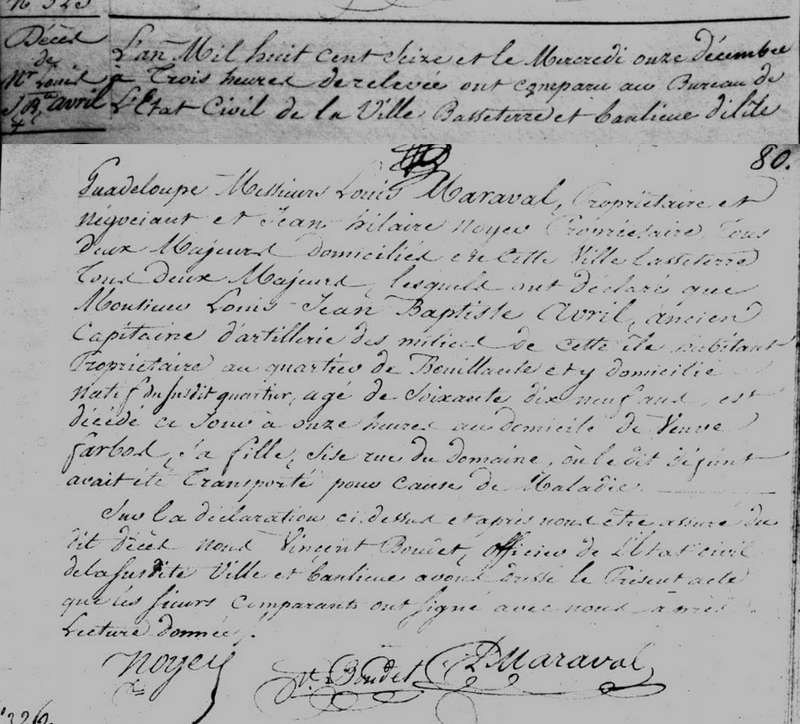 N° 325
Décès
de
Mr Louis
J. Bte avril
L'an Mil huit cent seize et le Mercredi onze décembre
a Trois heures de relevée ont comparu au Bureau de
L'Etat Civil de la Ville Basseterre et banlieue d'isle
80.
Guadeloupe Messieurs Louis Maraval, Propriétaire et
Négociant et Jean hilaire Noyer Propriétaire Tous
deux Majeurs domiciliés en cette Ville Basseterre
Tous deux Majeurs, lesquels ont déclaré que
Monsieur Louis Jean Baptiste Avril, ancien
Capitaine d'artillerie des milices de cette île habitant
Propriétaire au quartier de Bouillante et y domicilié
natif du susdit quartier, agé de Soixante dix neuf ans, est
décédé ce Jour à onze heures au domicile de Veuve
farbos, sa fille, sise rue du domaine, où le dit défunt
avait été Transporté pour cause de Maladie.
Sur la déclaration ci dessus et après nous être assuré du
dit décès nous Vincent Boudet, officier de L'Etat civil
de la susdite Ville et banlieue avons dressé le Présent acte
que les sieurs Comparants ont signé avec nous après
Lecture donnée.
Noyer
Vt Boudet
L Maraval
326